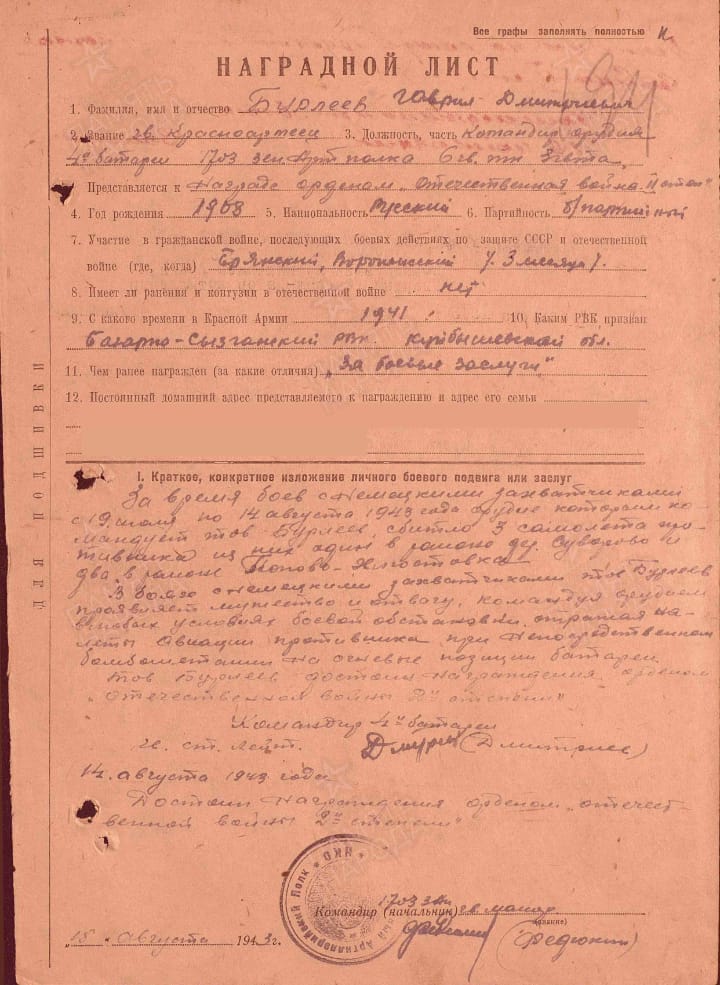 Все графы заполнять полностью
НАГРАДНОЙ ЛИСТ
1. Фамилия, имя и отчество Бурлеев Гаврил Дмитриевич
2. Звание гв. Красноармеец 3. Должность, часть Командир орудия
4й батареи 1703 зен. Арт полка 6 гв. тк 3 гвта
Представляется к Награде орденом „Отечественная война II степ"
4. Год рождения 1903 5. Национальность Русский 6. Партийность б/партийный
7. Участие в гражданской войне, последующих боевых действиях по защите СССР и отечественной
войне (где, когда) Брянский, Воронежский /. 3 месяца /.
8. Имеет ли ранения и контузии в отечественной войне нет
9. С какого времени в Красной Армии 1941 10. Каким РВК призван
Базарно-Сызганский рвк. Куйбышевской обл.
11. Чем ранее награжден (за какие отличия) „За боевые заслуги"
12. Постоянный домашний адрес представляемого к награждению и адрес его семьи
ДЛЯ ПОДШИВКИ
I. Краткое, конкретное изложение личного боевого подвига или заслуг
За время боев с немецкими захватчиками
с 19 июля по 14 августа 1943 года орудие которым ко-
мандует тов Бурлеев, сбито 3 самолета про-
тивника из них один в районе дер. Суворово и
два в районе
В боях с немецкими захватчиками тов Бурлеев
проявляет мужество и отвагу, командуя орудием
в условиях боевой обстановки, отражая на-
леты авиации противника при непосредственном
бомбометании на огневые позиции батареи.
Тов Бурлеев достоин награждения орденом
„Отечественной войны 2й степени"
Командир 4й батареи
гв. ст. лейт. (Дмитриев)
14. августа 1943 года
Достоин награждения орденом „отечест-
венной войны 2й степени"
1703 зап
Командир (начальник) гв. майор
(звание)
(Федюнин)
„15" августа 1943 г.
Артиллерийский Полк * НКО *